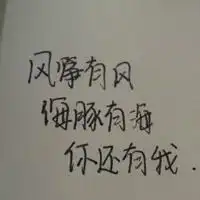 风筝有风
海豚有海
你还有我.